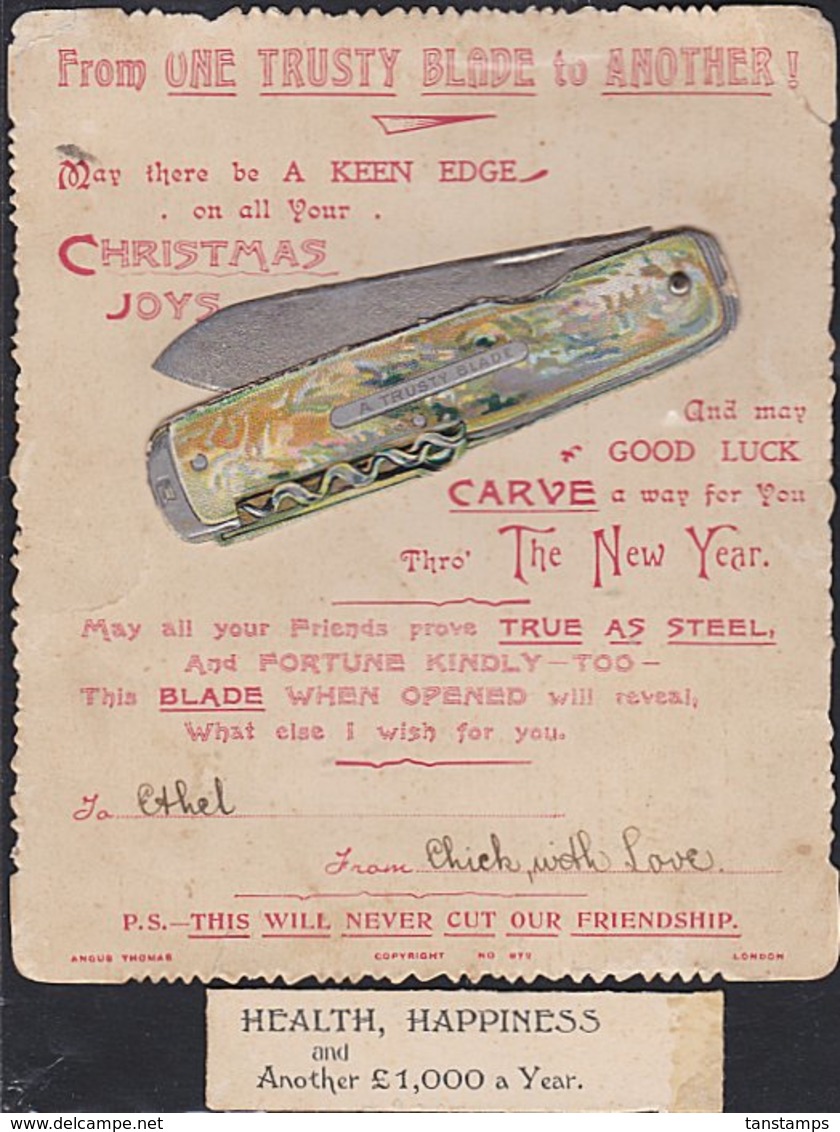 From ONE TRUSTY BLADE to ANOTHER!
May there be A KEEN EDGE
. on all Your .
CHRISTMAS
JOYS
A TRUSTY BLADE
And may
GOOD LUCK
CARVE a way for You
Thro' The New Year.
May all your Friends prove TRUE AS STEEL,
And FORTUNE KINDLY—TOO—
This BLADE WHEN OPENED will reveal,
What else I wish for you.
To Ethel
From Chick, with Love.
P.S.—THIS WILL NEVER CUT OUR FRIENDSHIP.
ANGUS THOMAS COPYRIGHT NO 872 LONDON
HEALTH, HAPPINESS
and
Another £1,000 a Year.
tanstamps